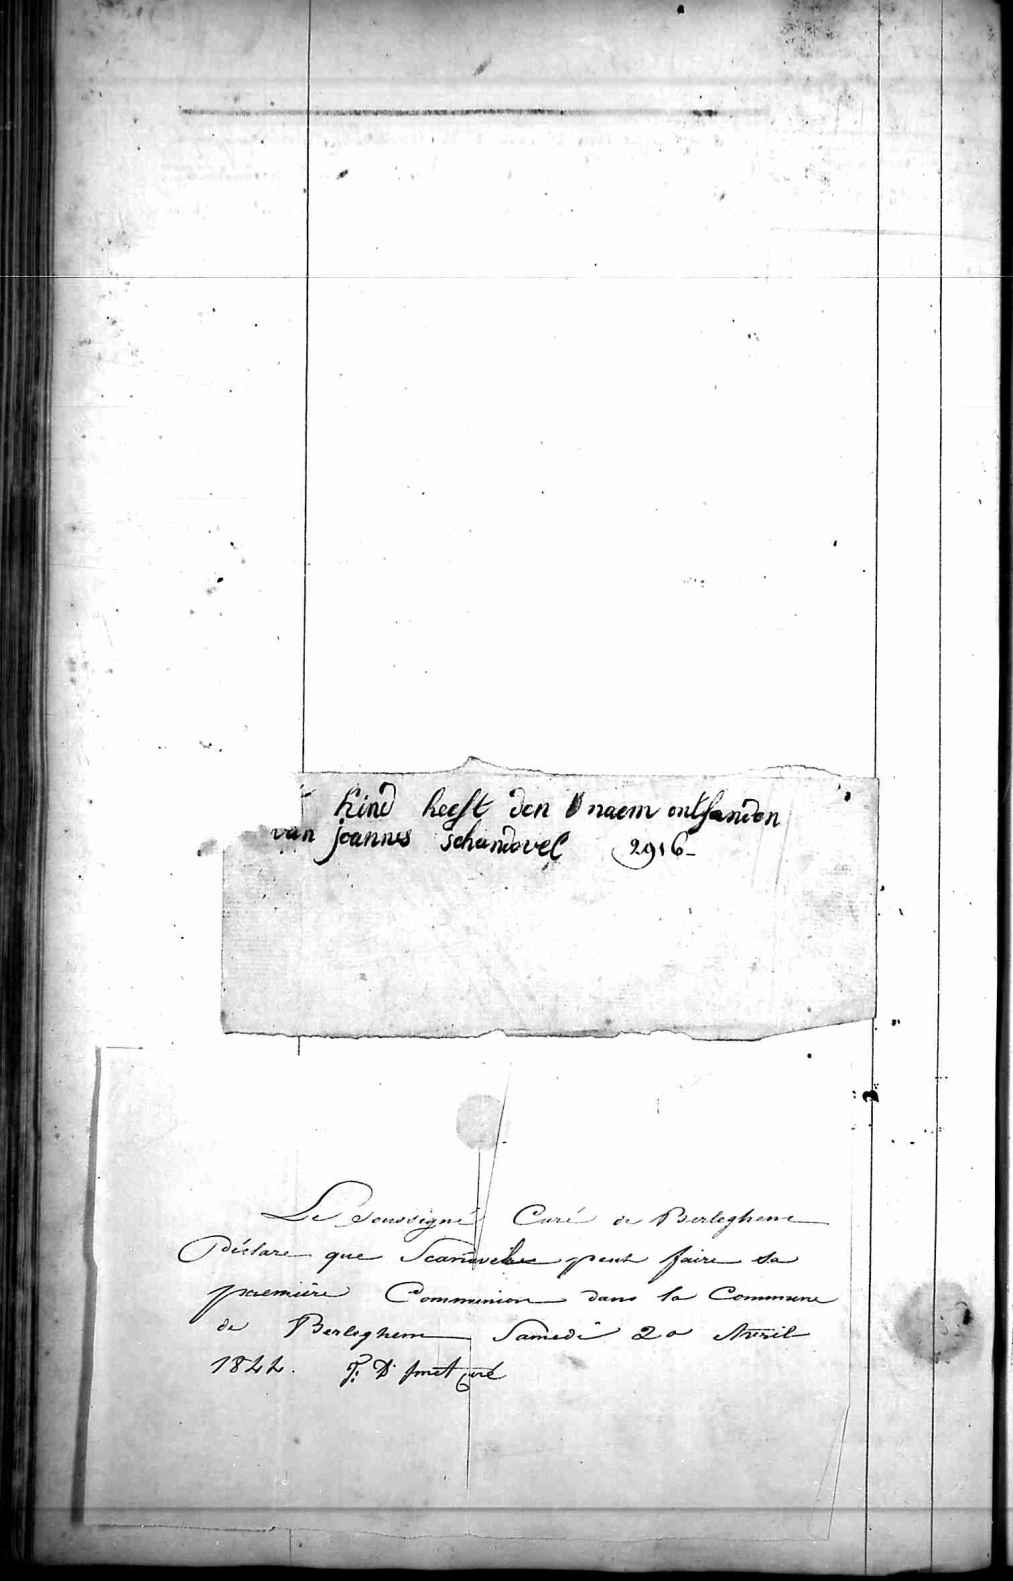 kind heeft den naem ontfanden
van joannes schandevel 2916-
Le Soussigné Curé de Berleghem
Déclare que Scandevel peut faire sa
première Communion dans la Commune
de Berleghem Samedi 20 Avril
1844. curé